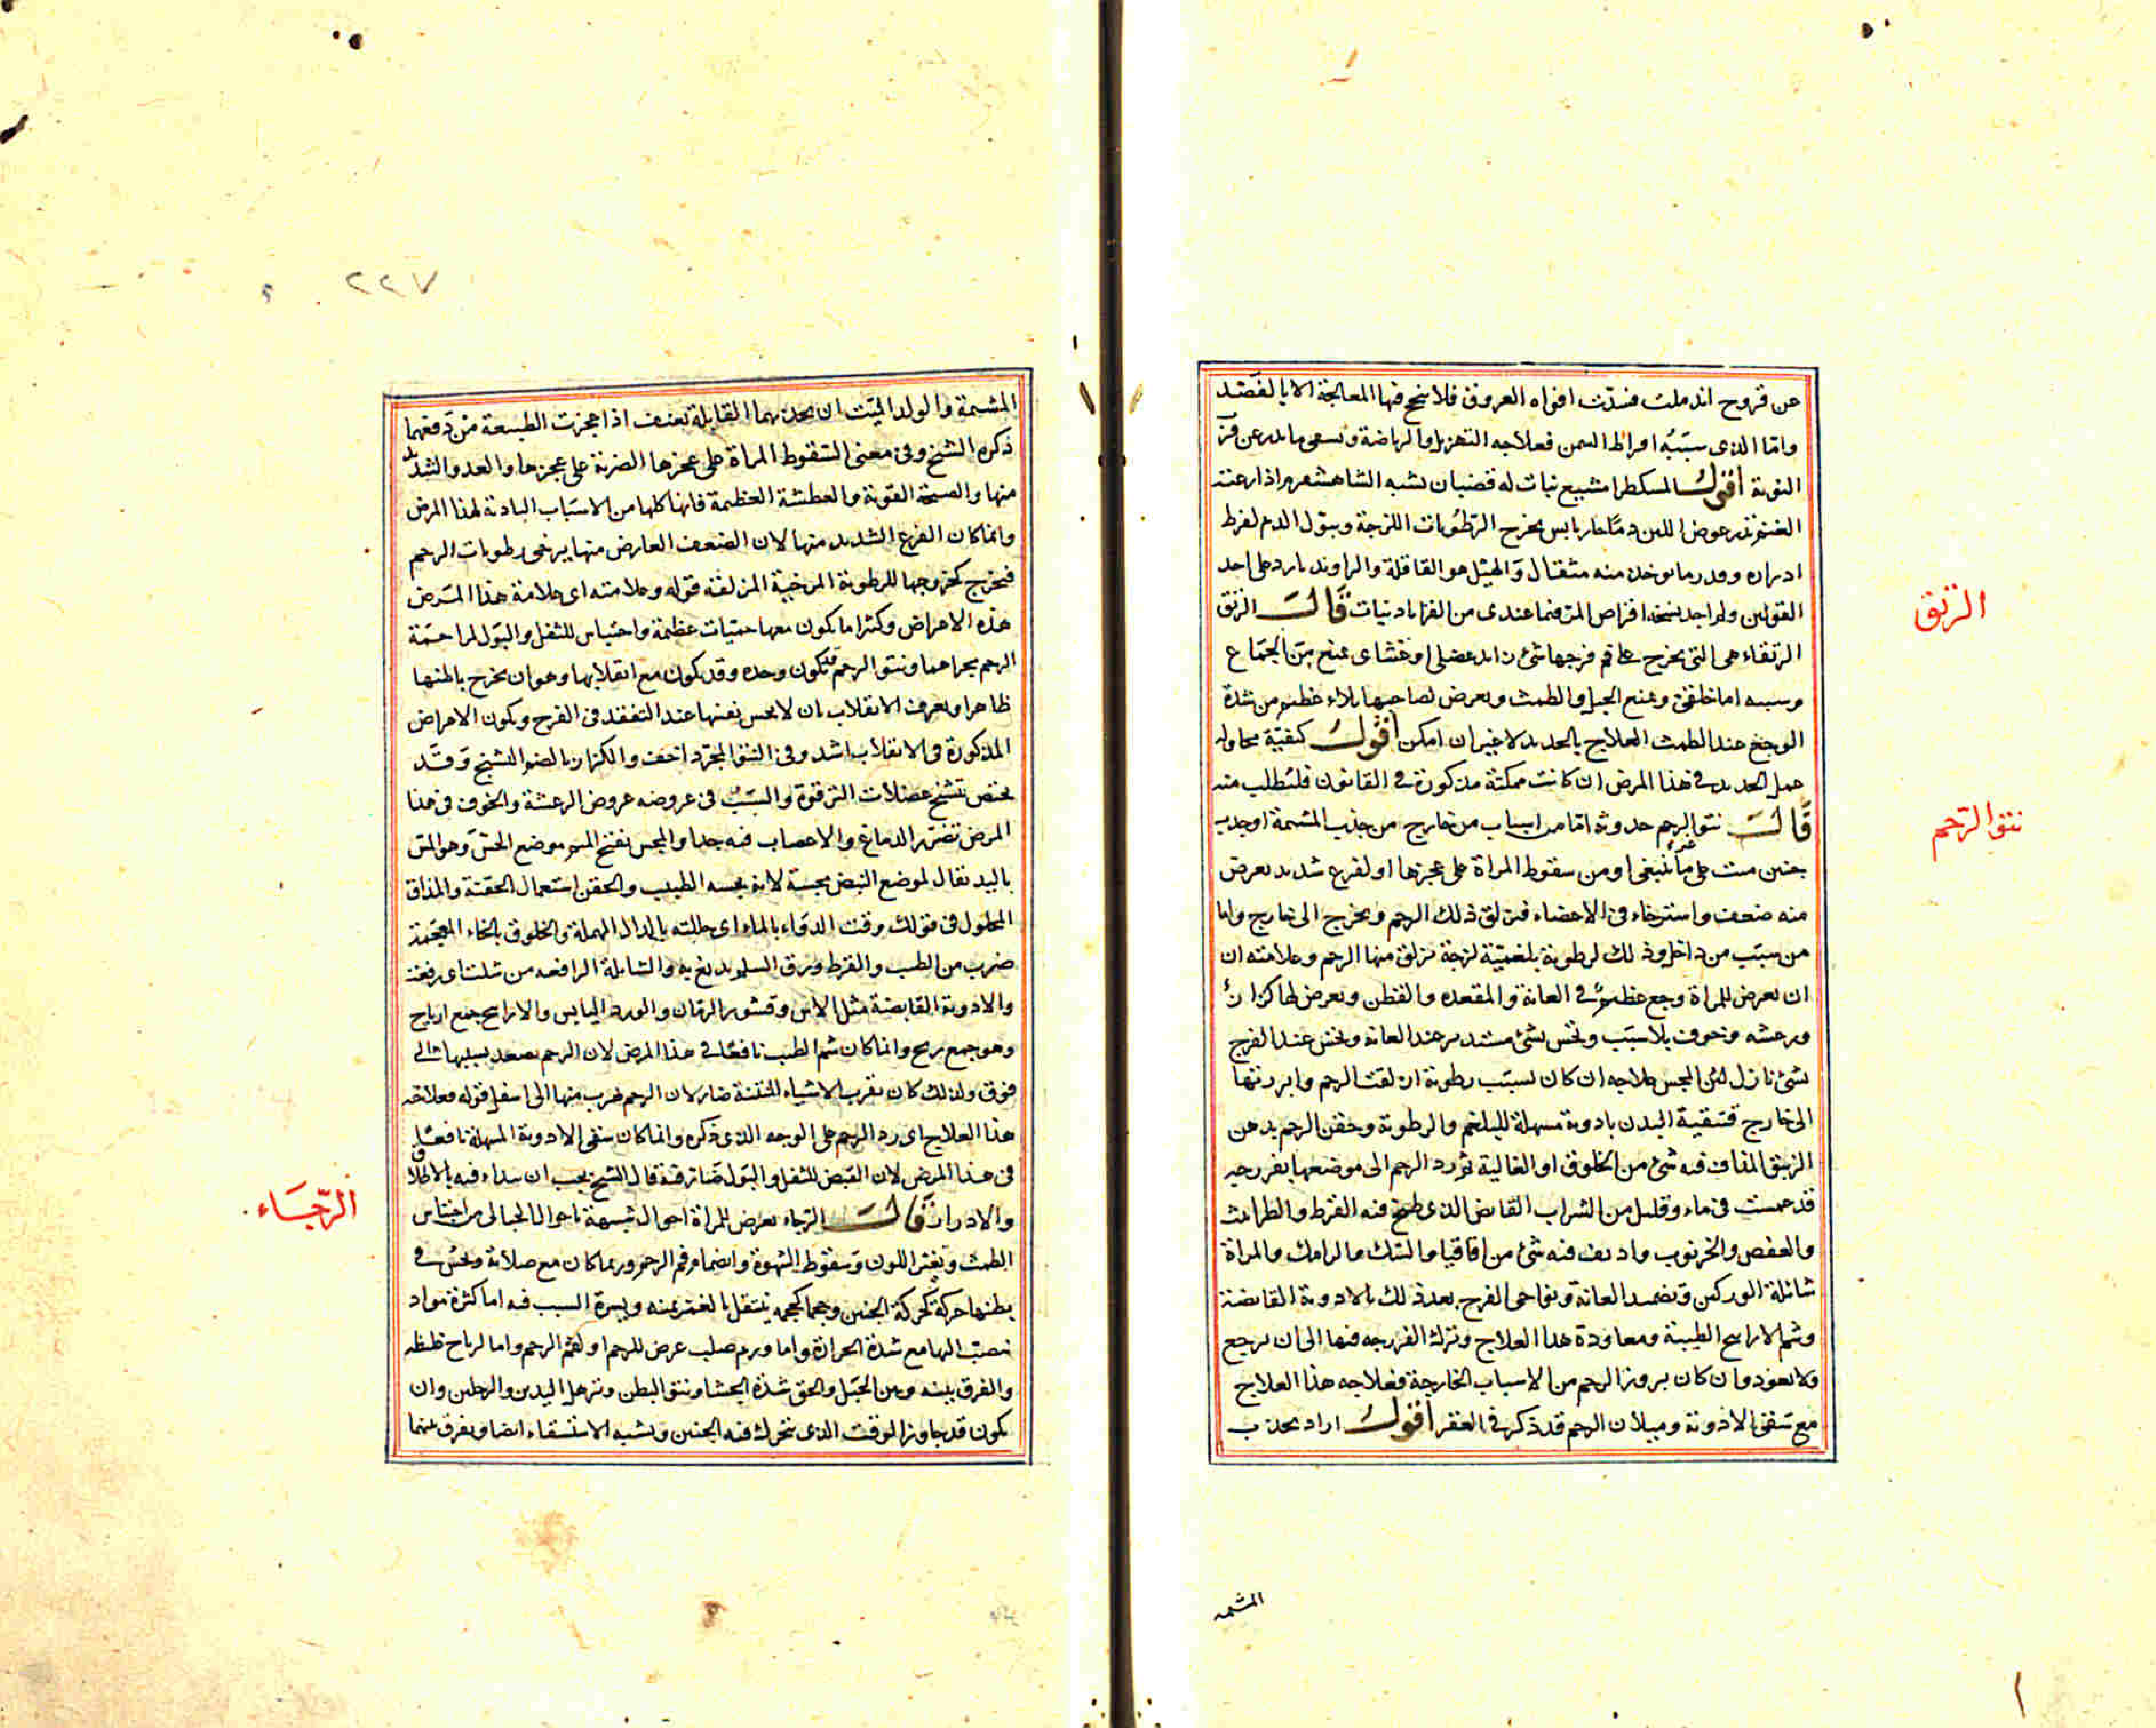 عن قروح اندملت فسدت افواه العروق فلا ينجح فيها المعالجة الا بالفصد
واما الذى سببه افراط السمن فعلاجه التهزيل والرياضة ويسعى ما يدر عن
القوية اقول المسكطرامشيع نبات له قضبان يشبه الشاهشفرم اذا رعته
الغنم يدر عوض اللبن دما حار يابس يخرج الرطوبات اللزجة ويبول الدم لفرط
ادراره وقدر ما يوخذ منه مثقال والهيل هو القاقلة والراوند بارد على احد
القولين ولم اجد نسخه اقراص المر فيما عندى من القراباذينات قالت الرتق
الرتقاء هى التى يخرج على فم فرجها شئ زائد عضلى او غشاى يمنع من الجماع
وسببه اما خلقى ويمنع الحبل والطمث ويعرض لصاحبها بلاء عظيم من شدة
الوجع عند الطمث العلاج بالحديد لا غير ان امكن اقول كيفية محاولة
عمل الحديد فى هذا المرض ان كانت ممكنة مذكورة فى القانون فليطلب منه
قالت نتو الرحم حدوثه اما من اسباب من خارج من جذب المشيمة او جذب
جنين ميت على ما ينبغى او من سقوط المراة على عجزها او لفزع شديد يعرض
منه ضعف واسترخاء فى الاعضاء فيزلق ذلك الرحم ويخرج الى خارج واما
من سبب من داخل وذلك لرطوبة بلغمية لزجة يزلق منها الرحم وعلامته ان
ان يعرض للمراة وجع عظيم فى العانة والمقعده والقطن ويعرض لها كزاز
ورعشه وخوف بلا سبب وتحس بشئ مستدير عند العانه وتحس عند الفرج
بشئ نازل لين المجس علاجه ان كان بسبب رطوبة ازلقت الرحم وابرزتها
الى خارج فتنقية البدن بادوية مسهلة للبلغم والرطوبة وحقن الرحم بدهن
الزنبق المذاف فيه شئ من الخلوق او الغالية ثم رد الرحم الى موضعها بفرزجه
قد غمست فى ماء وقليل من الشراب القابض الذى طبخ فيه القرظ والطراثيث
والعفص والخرنوب واديف فيه شئ من اقاقيا والسك والرامك والمراة
شائلة الوركين وتضميد العانة ونواحى الفرج بعد ذلك بالادوية القابضة
وشم الاراييح الطيبة ومعاودة هذا العلاج وترك الفرزجه فيها الى ان يرجع
ولا يعود وان كان بروز الرحم من الاسباب الخارجة فعلاجه هذا العلاج
مع سقى الادوية وميلان الرحم قد ذكر فى العقر اقول اراد بجذب
الرتق
نتو الرحم
المشيمه
٢٢٧
المشيمة والولد الميت ان يجذبهما القابلة بعنف اذا عجزت الطبيعة من دفعهما
ذكره الشيخ وفى معنى السقوط المراة على عجزها الضربة على عجزها والعدو الشديد
منها والصيحة القوية والعطسة العظيمة فانها كلها من الاسباب البادية لهذا المرض
وانما كان الفزع الشديد منها لان الضعف العارض منها يرخى رطوبات الرحم
فيخرج كخروجها للرطوبة المرخية المزلقة قوله وعلامته اى علامة هذا المرض
هذه الاعراض وكثيرا ما يكون معها حميات عظيمة واحتباس للثفل والبول لمزاحمة
الرحم مجراهما ونتو الرحم قد يكون وحده وقد يكون مع انقلابها وهو ان يخرج باطنها
ظاهرا ويعرف الانقلاب بان لا يحس بفمها عند التفقد فى الفرج ويكون الاعراض
المذكورة فى الانقلاب اشد وفى النتو المجرد اخف والكزاز بالضم التشنج وقد
يختص بتشنج عضلات الترقوة والسبب فى عروضه عروض الرعشة والخوف فى هذا
المرض تضرر الدماغ والاعصاب فيه جدا والمجس بفتح الميم موضع الجس وهو المس
باليد يقال لموضع النبض مجسة لانه يجسه الطبيب والحقن استعمال الحقنة والمذاف
المحلول فى قولك دفت الدواء بالماء اى حللته بالدال المهملة والخلوق بالخاء المعجمة
ضرب من الطيب والقرظ ورق السلم يدبغ به والشائلة الرافعه من شلت اى رفعت
والادوية القابضة مثل الاس وقشور الرمان والورد اليابس والاراييح جمع ارياح
وهو جمع ريح وانما كان شم الطيب نافعا فى هذا المرض لان الرحم يصعد بسببها الى
فوق ولذلك كان تقرب الاشياء المنتنة ضار لان الرحم يهرب منها الى اسفل قوله فعلاجه
هذا العلاج اى رد الرحم على الوجه الذى ذكره وانما كان سقى الادوية المسهلة نافعا
فى هذا المرض لان القبض للثفل والبول ضار فيه قال الشيخ يجب ان يبداء فيه بالاطلاق
والادرار قالت الرجاء يعرض للمراة احوال شبيهة باحوال الحبالى من احتباس
الطمث وتغير اللون وسقوط الشهوة وانضمام فم الرحم وربما كان مع صلابة وتحس فى
بطنها حركة كحركة الجنين وحجما كحجمه ينتقل بالغمز يمنه ويسرة السبب فيه اما كثرة مواد
تنصب اليها مع شدة الحرارة واما ورم صلب عرض للرحم او لفم الرحم واما لرياح غليظه
والفرق بينه وبين الحبل والحق شدة الجشا ونتو البطن وترهل اليدين والرجلين وان
يكون قد جاوز الوقت الذى يتحرك فيه الجنين ويشبه الاستسقاء ايضا ويفرق بينهما
الرجاء